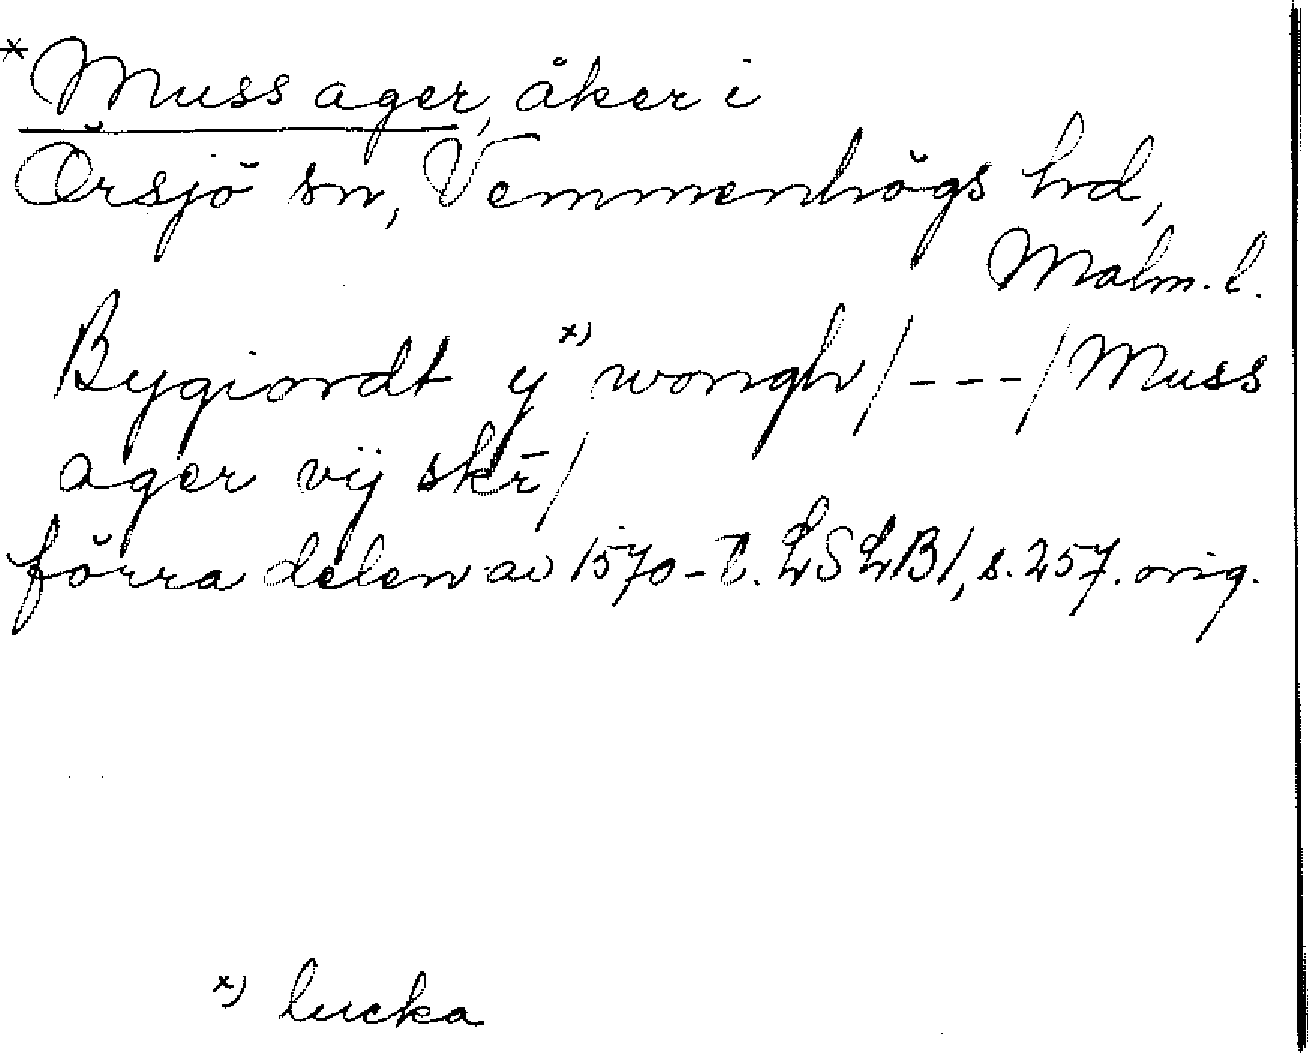 *Muss ager, åker i
Örsjö sn, Vemmenhögs hd,
Malm. l.
Bygiordt y *) wongh/---/Muss
ager vij skr̄/
förra delen av 1570-t. LSLB1, s. 257. orig.
*) lucka